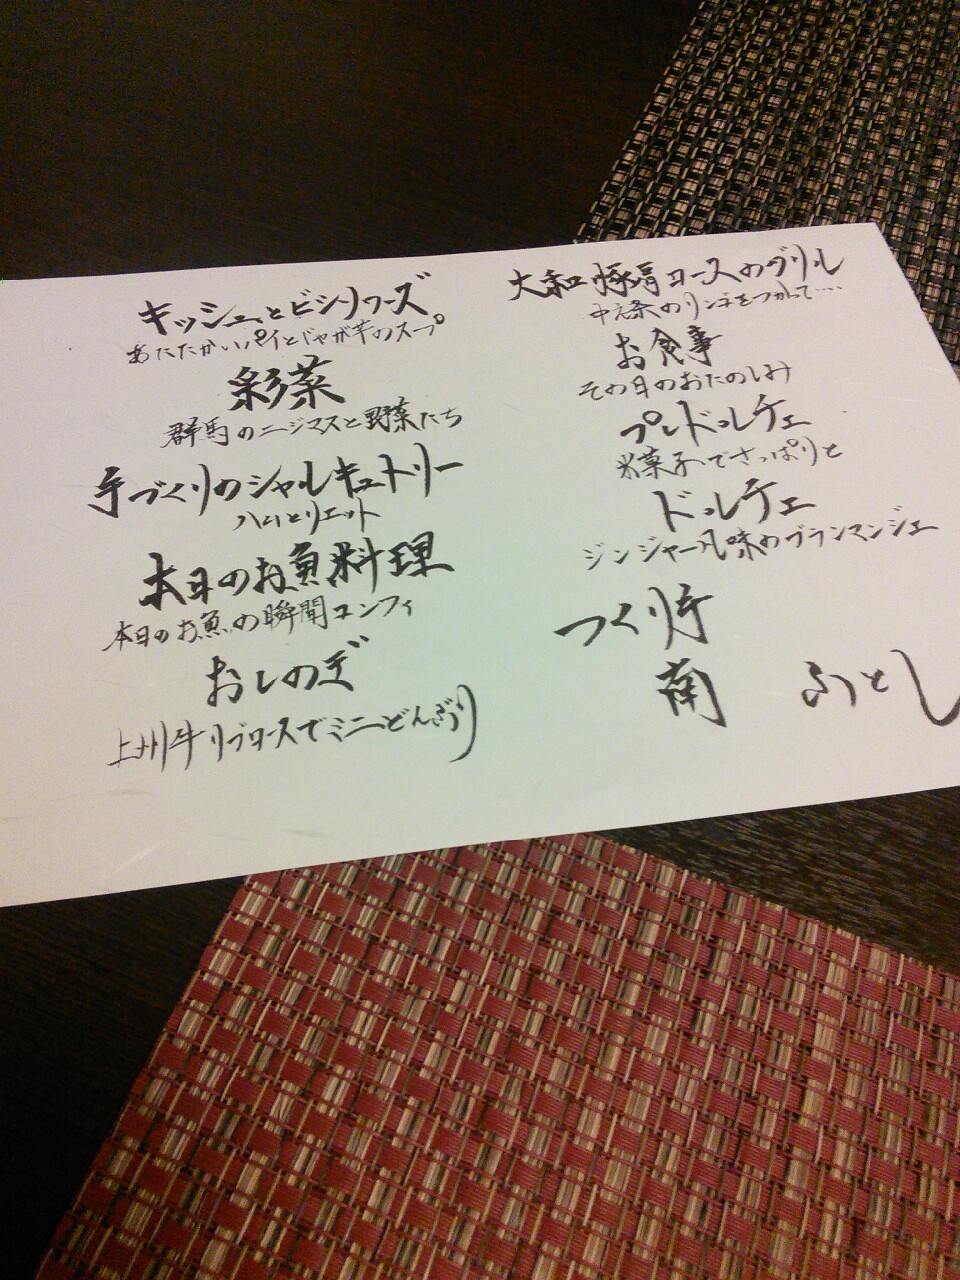 キッシュとビシソワーズ
あたたかいパイとじゃが芋のスープ
彩菜
群馬のニジマスと野菜たち
手づくりのシャルキュトリー
ハムとリエット
本日のお魚料理
本日のお魚の瞬間コンフィ
おしのぎ
上州牛リブロースでミニどんぶり
大和豚肩ロースのグリル
中之条のリンゴをつかって....
お食事
その日のおたのしみ
プレドルチェ
氷菓子でさっぱりと
ドルチェ
ジンジャー風味のブランマンジェ
つくり手
南 ふとし